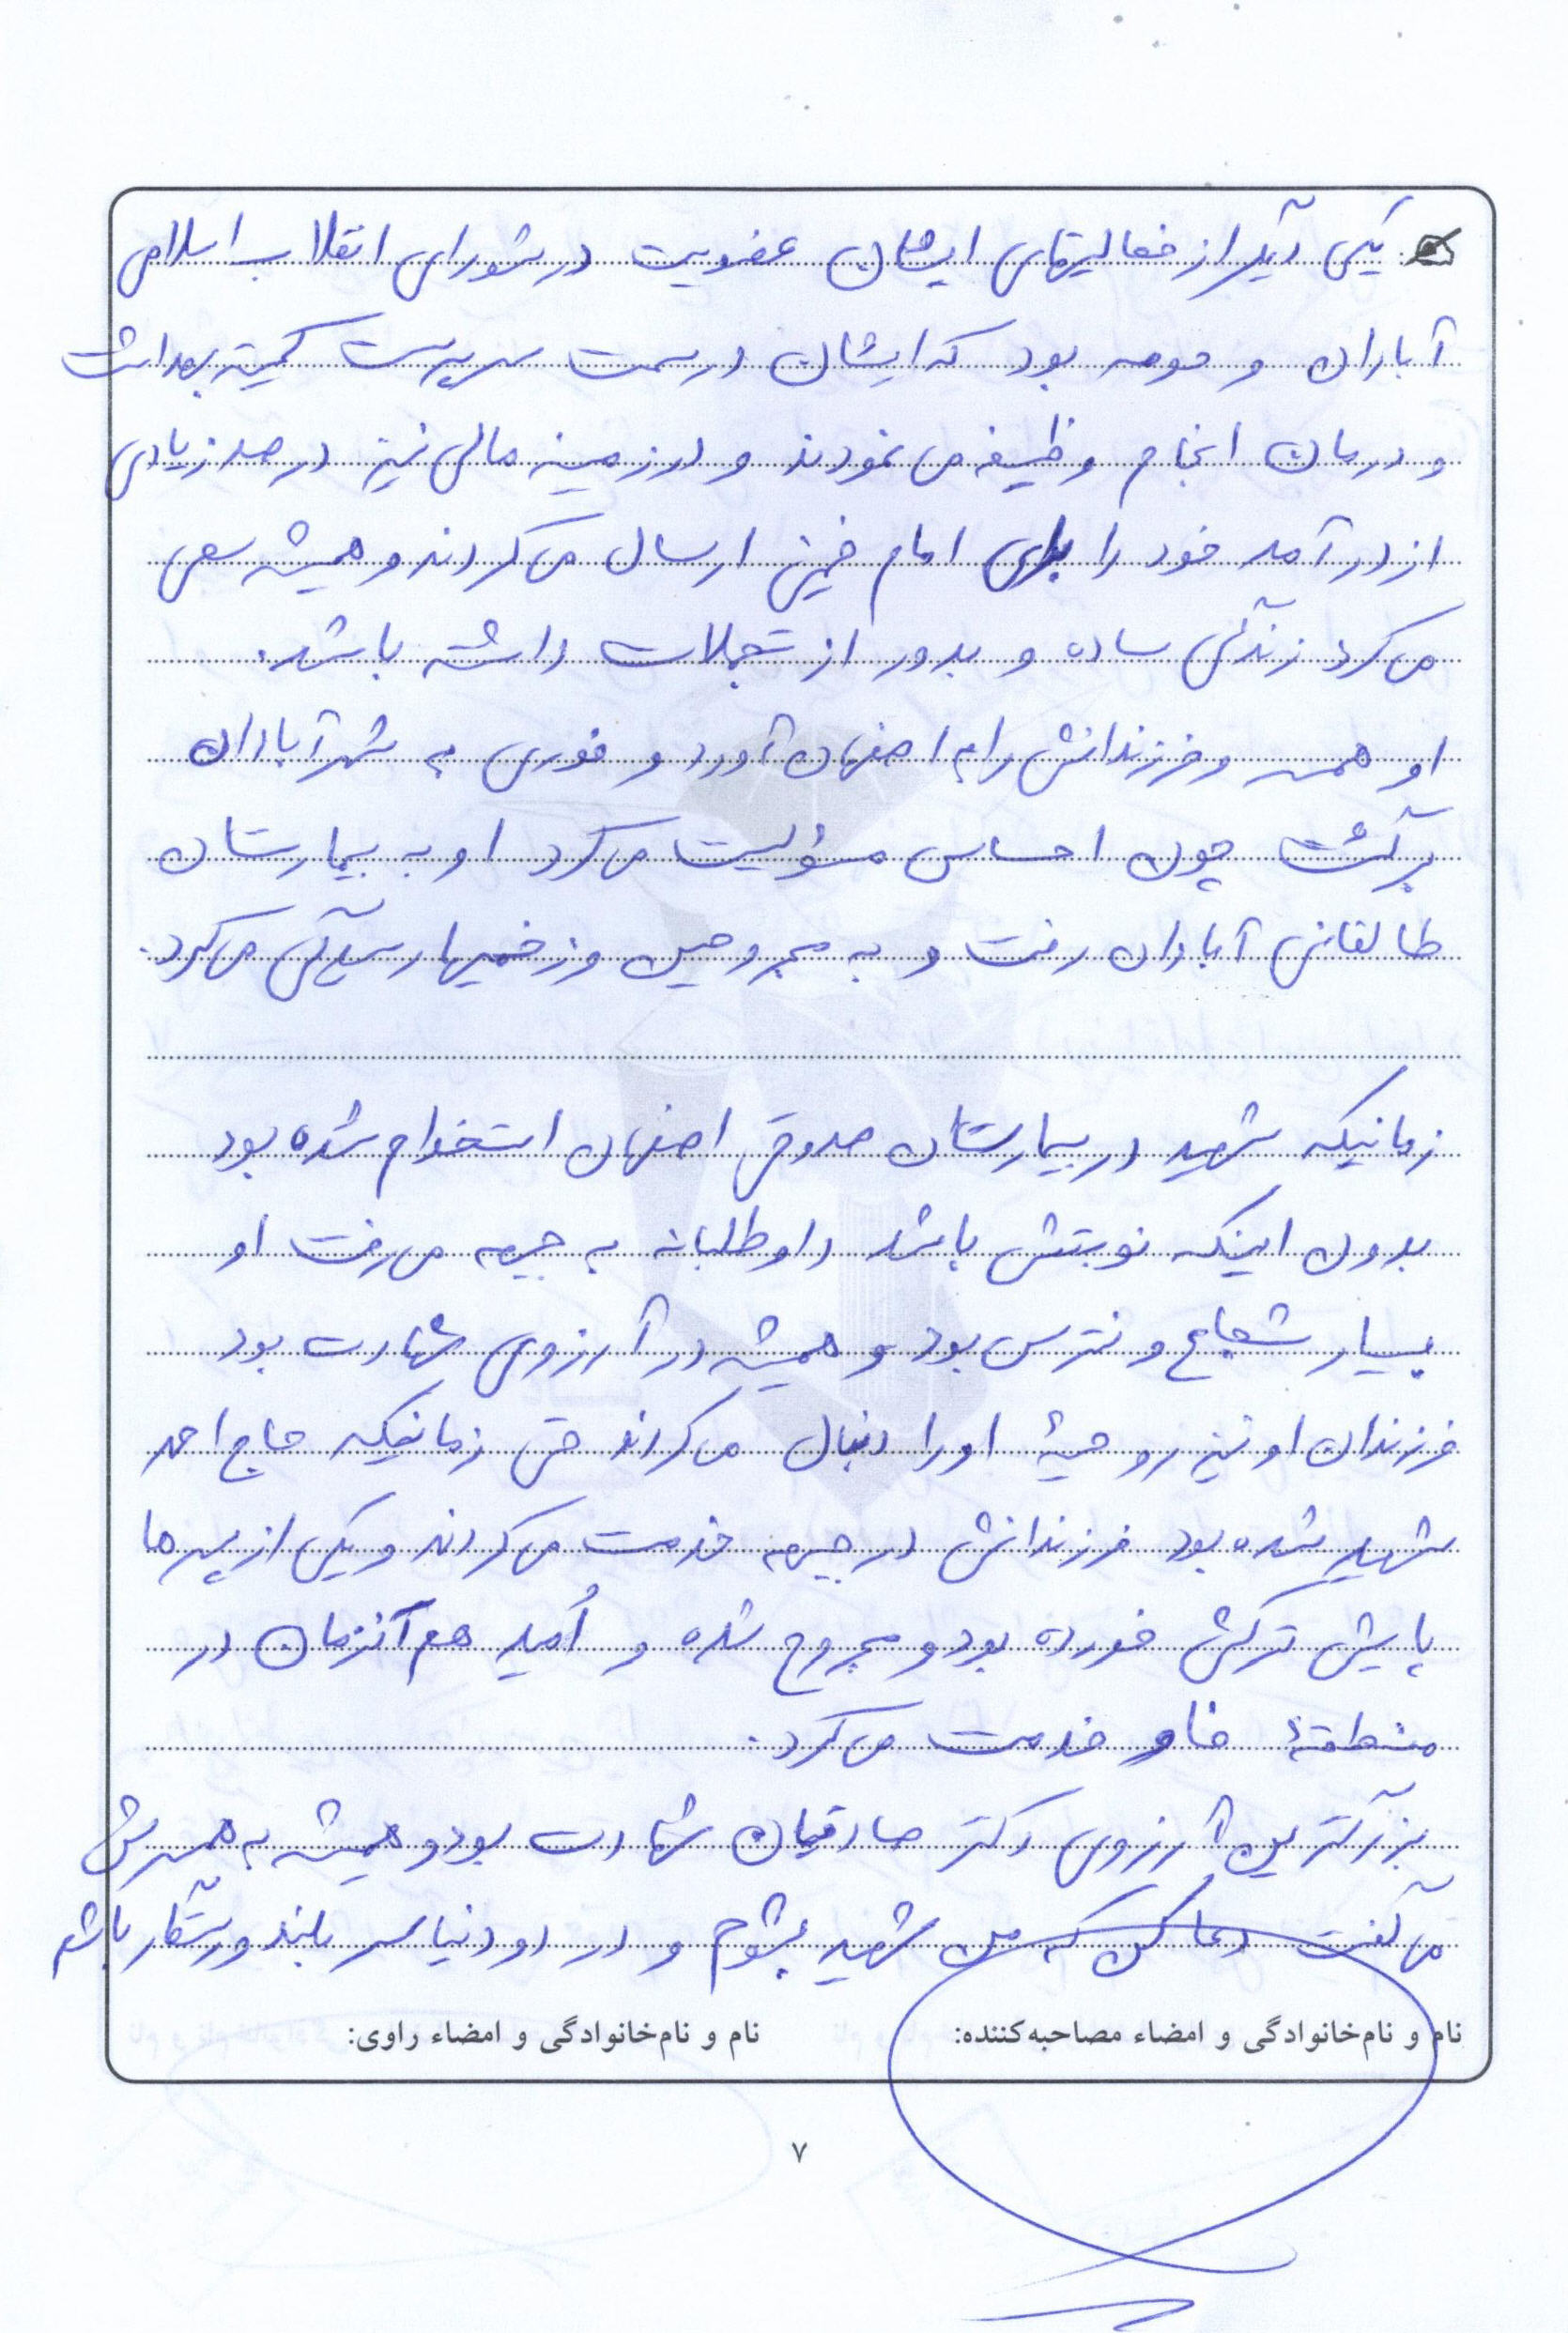 یکی دیگر از فعالیتهای ایشان عضویت در شورای انقلاب اسلامی
آبادان و حومه بود که ایشان در سمت سرپرست کمیته بهداشت
و درمان انجام وظیفه می نمودند و در زمینه مالی نیز درصد زیادی
از درآمد خود را برای امام خمینی ارسال می کردند و همیشه سعی
می کرد زندگی ساده و بدور از تجملات داشته باشد.
او همسر و فرزندانش را به اصفهان آورد و فوری به شهر آبادان
برگشت چون احساس مسؤلیت می کرد او به بیمارستان
طالقانی آبادان رفت و به مجروحین و زخمیها رسیدگی می کرد.
زمانیکه شهید در بیمارستان صدوقی اصفهان استخدام شده بود
بدون اینکه نوبتش باشد داوطلبانه به جبهه می رفت او
بسیار شجاع و نترس بود و همیشه در آرزوی شهادت بود
فرزندان او نیز روحیهٔ او را دنبال می کردند حتی زمانیکه حاج احمد
شهید شده بود فرزندانش در جبهه خدمت می کردند و یکی از پسرها
پایش ترکش خورده بود و مجروح شده و اُمید هم آنزمان در
منطقهٔ فاو خدمت می کرد.
بزرگترین آرزوی دکتر صادقیان شهادت بود و همیشه به همسرش
می گفت دعا کن که من شهید بشوم و در دو دنیا سر بلند و رستگار باشم
نام و نام‌خانوادگی و امضاء مصاحبه‌کننده: نام و نام‌خانوادگی و امضاء راوی:
۷